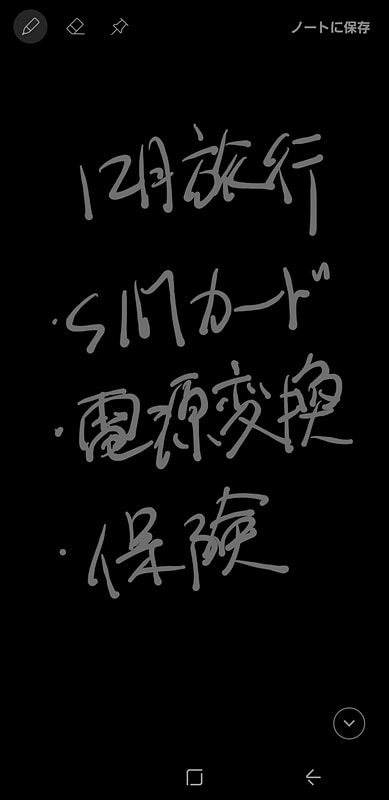 ノートに保存
12月旅行
・SIMカード
・電源変換
・保険